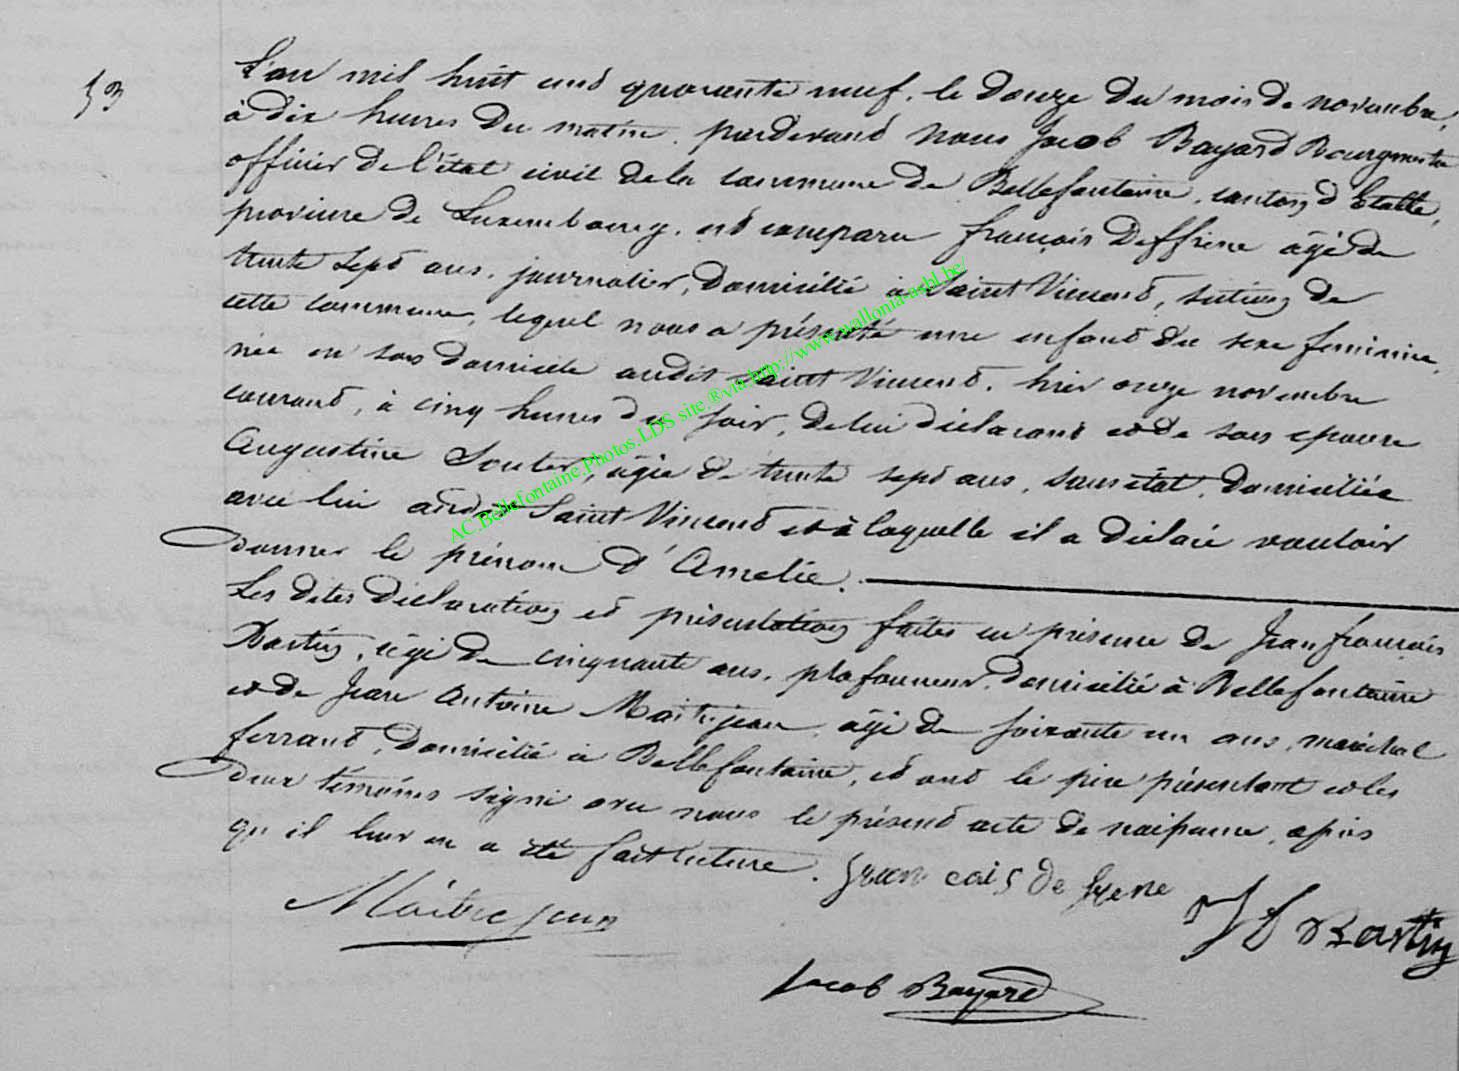 53
L'an mil huit cent quarante neuf, le douze du mois de novembre,
à dix heures du matin, pardevant nous Jacob Bayard Bourgmestre
officier de l'état civil de la commune de Bellefontaine, canton d'Etalle,
province de Luxembourg, est comparu françois Deffrene âgé de
trente sept ans, journalier, domicilié à Saint Vincent, section de
cette commune, lequel nous a présenté une enfant du sexe feminine,
née en son domicile audit Saint Vincent, hier onze novembre
courant, à cinq heures du soir, de lui déclarant et de son epouse
Augustine Souter, âgée de trente sept ans, sans état, domiciliée
avec lui audit Saint Vincent et à laquelle il a déclaré vouloir
donner le prénom d'Amelie.
Les dites déclaration et présentation faites en présence de Jean françois
Bastin, âgé de cinquante ans, plafonneur, domicilié à Bellefontaine
et de Jean Antoine Maitrejean, âgé de soixante un ans, maréchal
ferrant, domicilié à Bellefontaine, et ont le père présentant et les
deux témoins signé avec nous le présent acte de naissance, après
qu'il leur en a été fait lecture. fran cois de frene
Maitrejean
J F Bastin
Jacob Bayard
AC.Bellefontaine.Photos.LDS site.®via.http://www.wallonia-asbl.be/